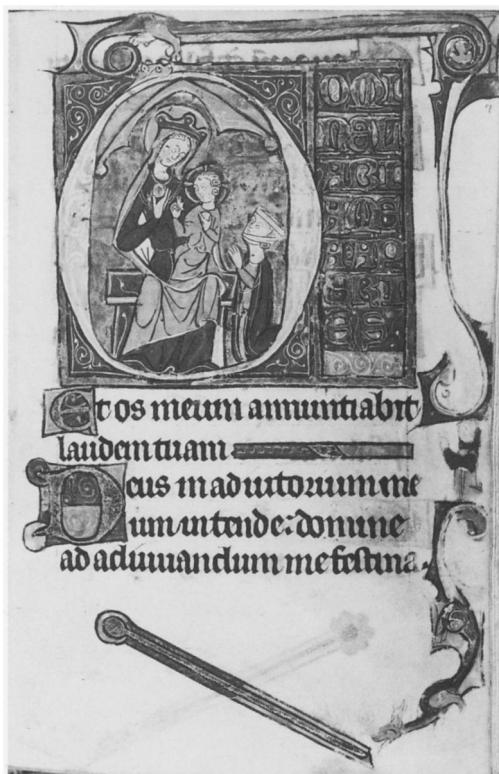 DOMI
NELA
BIA
MEA
APE
RI
ES
Et os meum annuntiabit
laudem tuam
Deus in adiutorium me
um intende: domine
ad adiuuandum me festina.